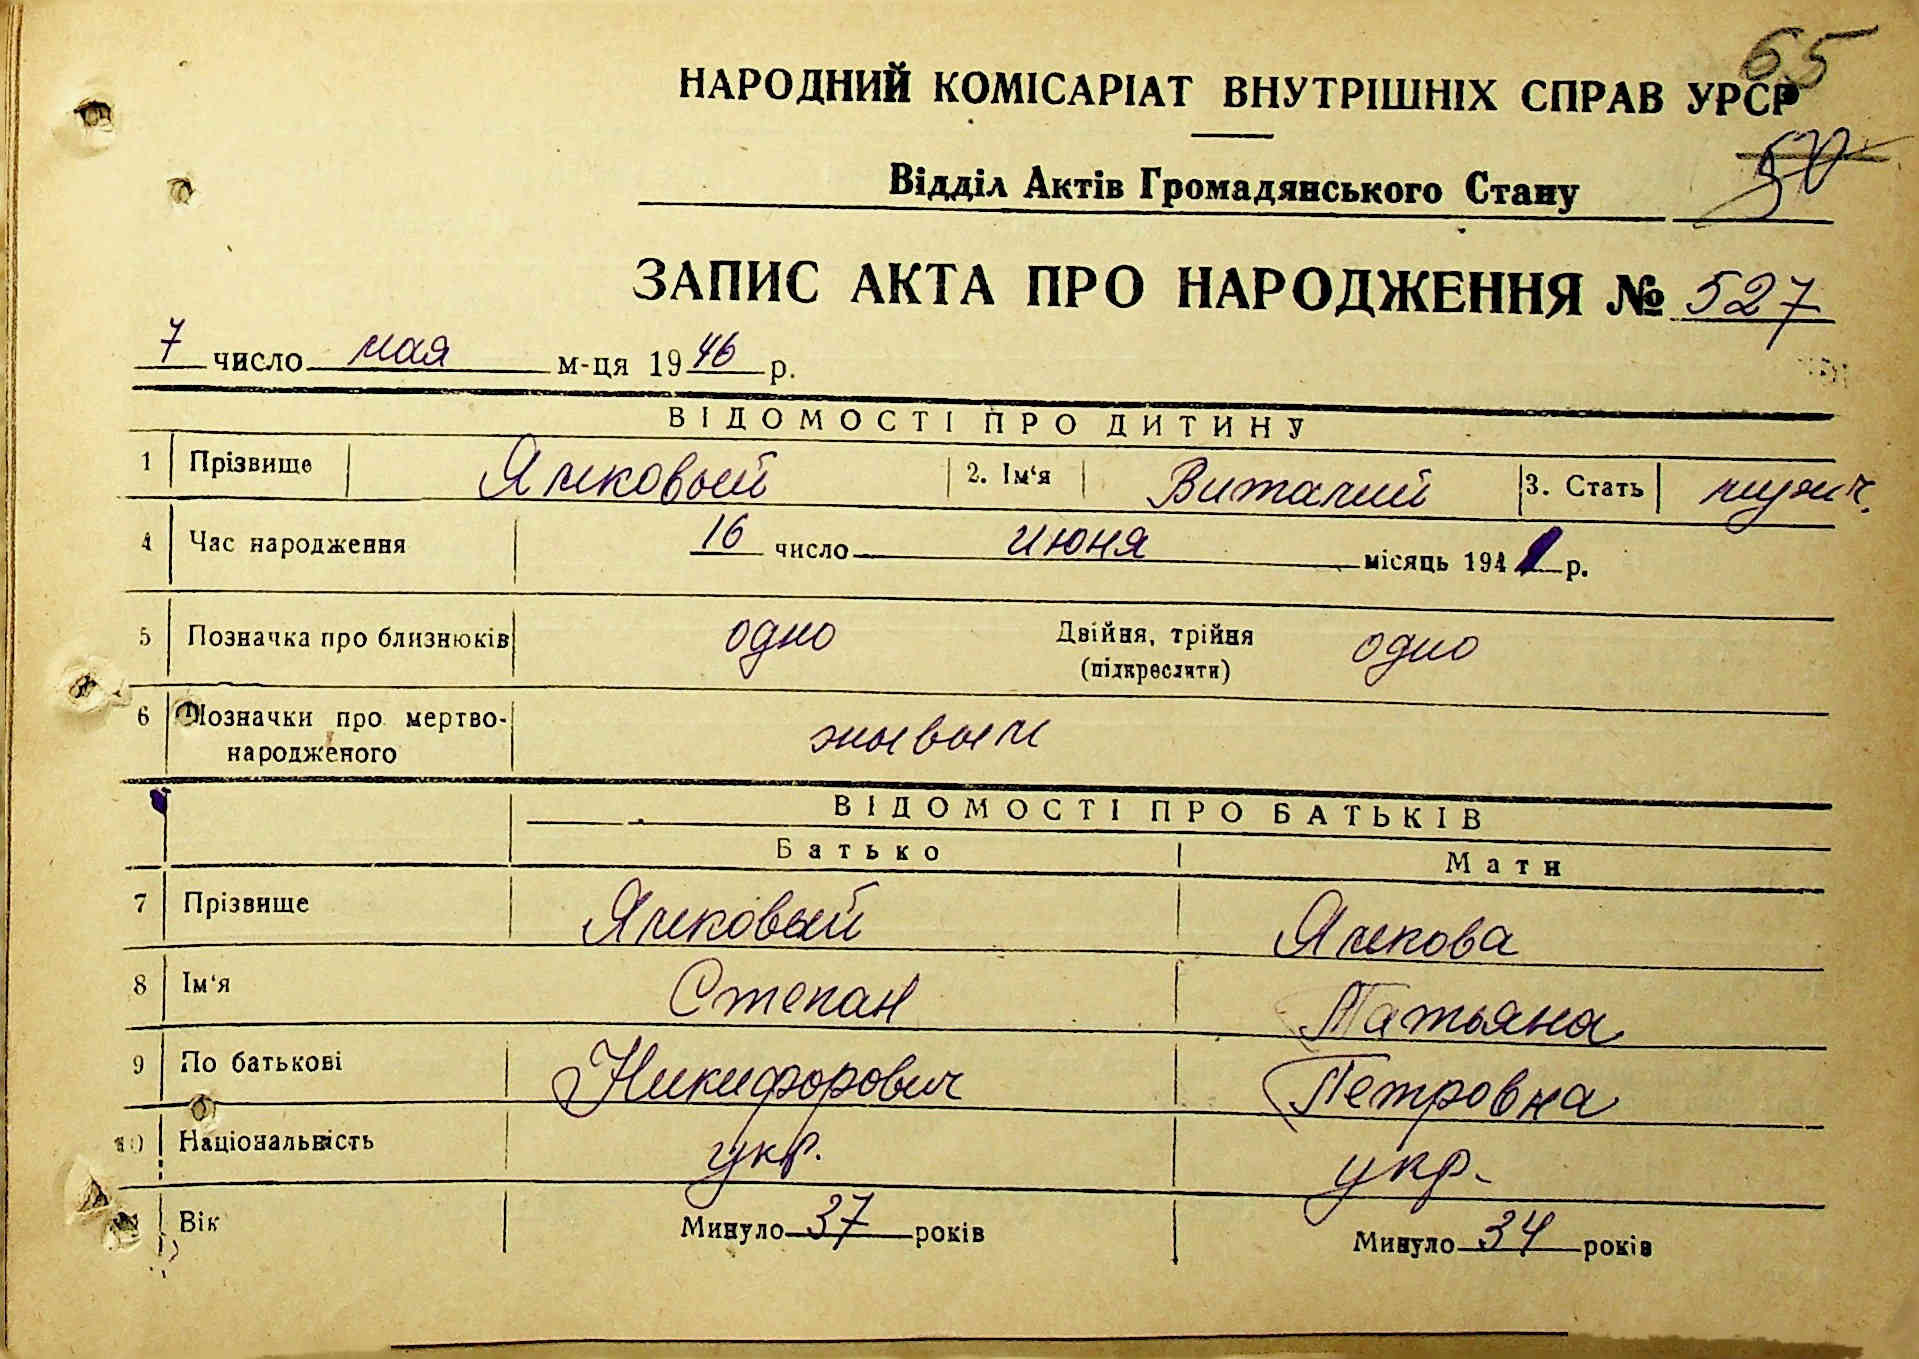 65
НАРОДНИЙ КОМІСАРІАТ ВНУТРІШНІХ СПРАВ УРСР
50
Відділ Актів Громадянського Стану
ЗАПИС АКТА ПРО НАРОДЖЕННЯ № 527
7 число мая м-ця 1946 р.
ВІДОМОСТІ ПРО ДИТИНУ
1 Прізвище Ямковый 2. Ім‘я Виталий 3. Стать мужч.
4 Час народження 16 число июня місяць 1941 р.
5 Позначка про близнюків одно Двійня, трійня одно
(підкреслити)
6 Позначки про мертво- живым
народженого
ВІДОМОСТІ ПРО БАТЬКІВ
Батько Мати
7 Прізвище Ямковый Ямкова
8 Ім‘я Степан Татьяна
9 По батькові Никифорович Петровна
10 Національність укр. укр.
Вік Минуло 37 років Минуло 34 років